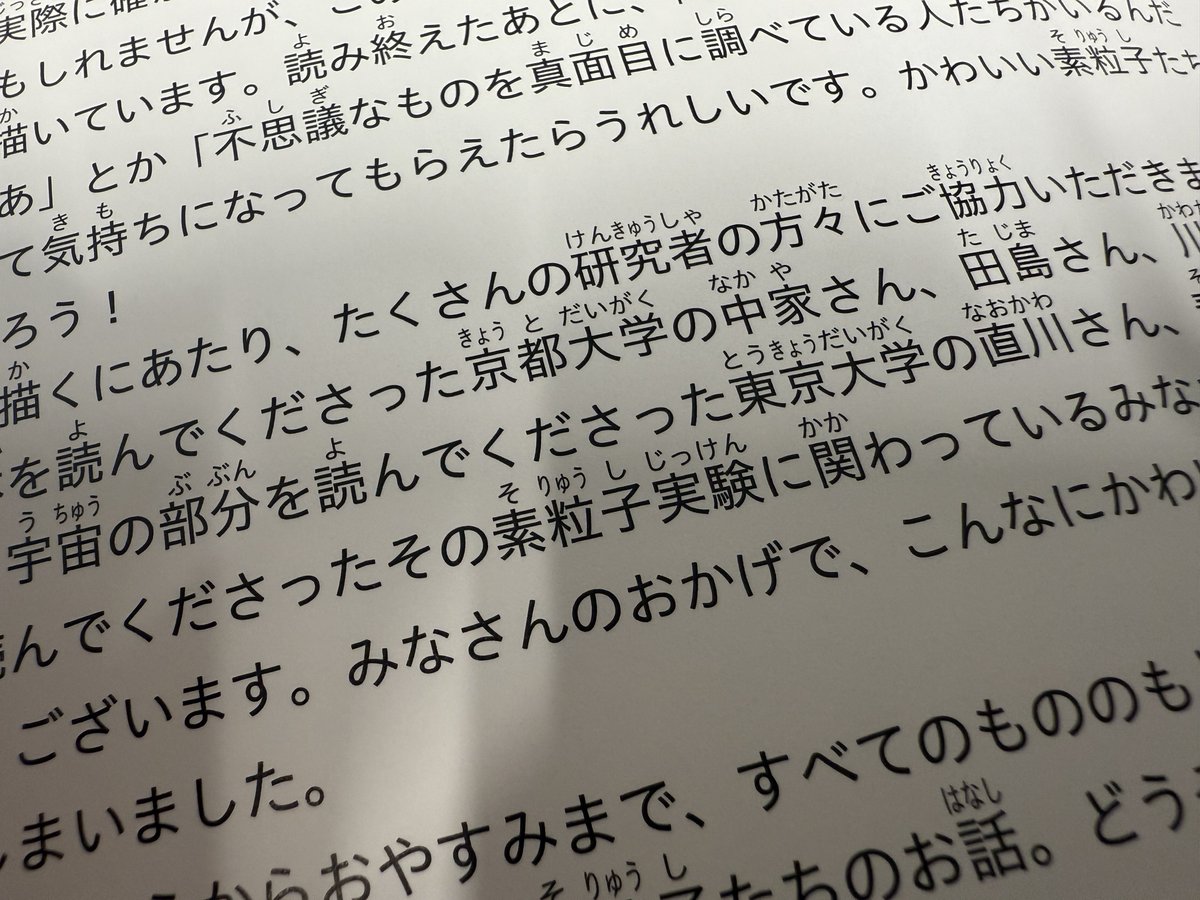 実際に確か
もしれませんが、この
描いています。読み終えたあとに、
あ」とか「不思議なものを真面目に調べている人たちがいるんだ
て気持ちになってもらえたらうれしいです。かわいい素粒子たち
ろう！
描くにあたり、たくさんの研究者の方々にご協力いただきま
を読んでくださった京都大学の中家さん、田島さん、川
宇宙の部分を読んでくださった東京大学の直川さん、
読んでくださったその素粒子実験に関わっているみな
ございます。みなさんのおかげで、こんなにかわい
しまいました。
からおやすみまで、すべてのもののも
たちのお話。どうぞ